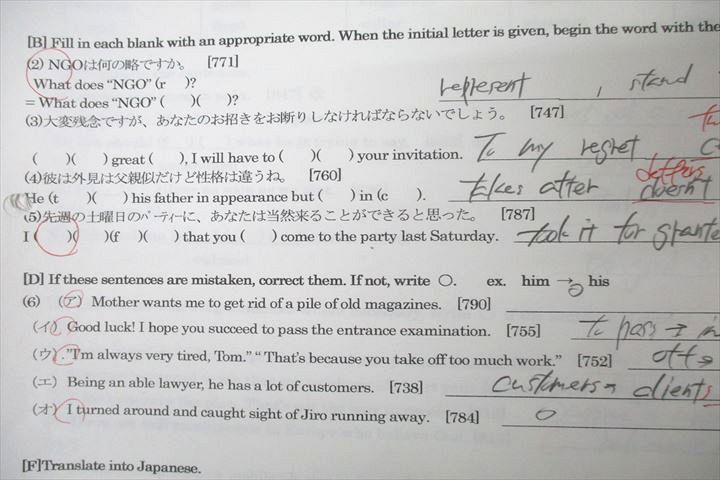 [B] Fill in each blank with an appropriate word. When the initial letter is given, begin the word with the
(2) NGOは何の略ですか。 [771]
What does "NGO" (r )? represent , stand
= What does "NGO" ( )( )?
(3)大変残念ですが、あなたのお招きをお断りしなければならないでしょう。 [747]
( )( ) great ( ), I will have to ( )( ) your invitation. To my regret
(4)彼は外見は父親似だけど性格は違うね。 [760]
differs
He (t )( ) his father in appearance but ( ) in (c ). takes after doesn't
(5)先週の土曜日のパーティーに、あなたは当然来ることができると思った。 [787]
I ( )( )(f )( ) that you ( ) come to the party last Saturday. took it for grante
[D] If these sentences are mistaken, correct them. If not, write ○. ex. him → his
(6) (ア) Mother wants me to get rid of a pile of old magazines. [790] ○
(イ) Good luck! I hope you succeed to pass the entrance examination. [755] to pass → in
(ウ) "I'm always very tired, Tom." " That's because you take off too much work." [752] off →
(エ) Being an able lawyer, he has a lot of customers. [738] customers → clients
(オ) I turned around and caught sight of Jiro running away. [784] ○
[F]Translate into Japanese.